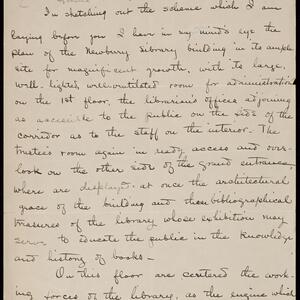 In sketching out the scheme which I am
laying before you I have in my mind's eye the
plan of the Newbury Library building in its ample
site for magnificent growth, with its large,
well-lighted, well-ventilated room for administration
on the 1st floor, the librarian's offices adjoining
as accessible to the public on the side of the
corridor as to the staff on the interior. The
trustees room again in ready access and over-
look on the other side of the grand entrance,
where are displayed at once the architectural
grace of the building and those bibliographical
treasures of the library whose exhibition may
serve to educate the public in the knowledge
and history of books –
On this floor are centered the work-
ing forces of the library, as the engine which